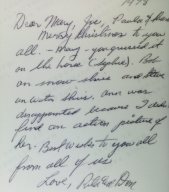 1978
Dear Mary, Joe, Paula &
Merry Christmas to you
all. - Mary - you guessed it
on the horse (). Bob
on snow shoe and
on water skiis. Ann was
disappointed because I didn't
find an action picture of
her. Best wishes to you all
from all of us
Love,